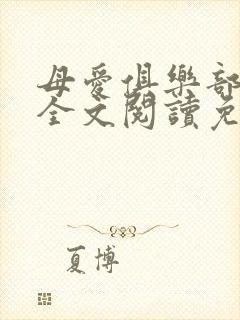 母愛俱樂部
全文閱讀免
夏博